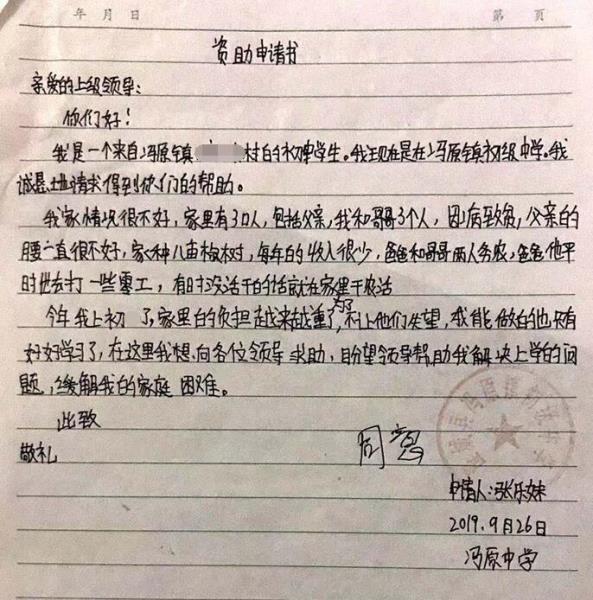 年 月 日 第 页
资助申请书
亲爱的上级领导:
你们好!
我是一个来自冯原镇 村的初中学生。我现在是在冯原镇初级中学。我
诚恳地请求得到你们的帮助。
我家情况很不好,家里有3口人,包括父亲,我和哥哥3个人,因病致贫,父亲的
腰一直很不好,家种八亩椒树,每年的收入很少,爸爸和哥哥两人务农,爸爸他平
时出去打一些零工,有时没活干的话就在家里干农活
今年我上初 了,家里的负担越来越重了,为了不让他们失望,我能做的也只有
好好学习了,在这里我想向各位领导求助,盼望领导帮助我解决上学的问
题,缓解我的家庭困难。
此致
敬礼
同意
申请人:张乐妹
2019.9月26日
冯原中学